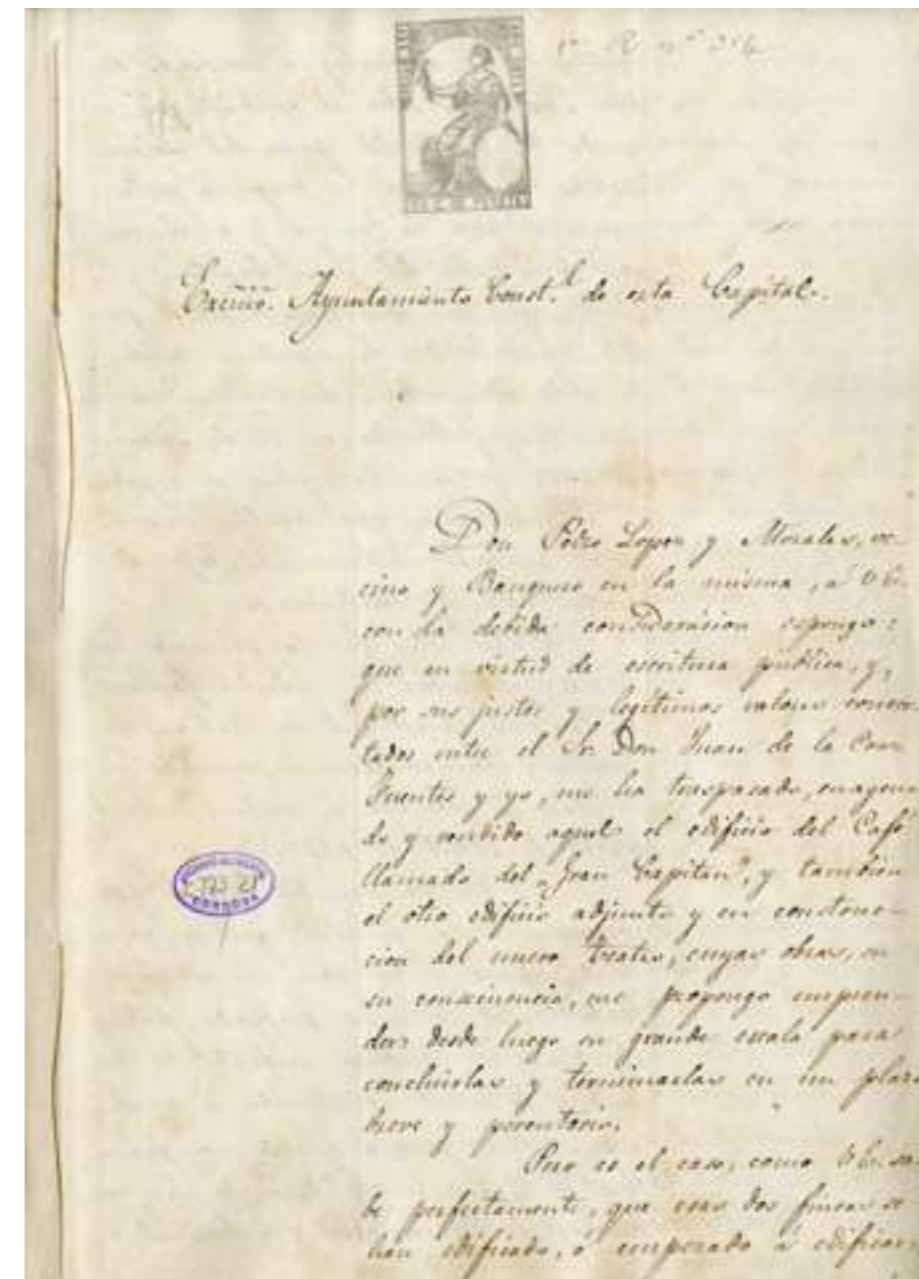 Excmo. Ayuntamiento Const.l de esta Capital.
Don Pedro Lopez y Morales, ve-
cino y Banquero en la misma, á V.E.
con la debida consideracion espongo:
que en virtud de escritura pública, y,
por sus justos y legítimos valores concer-
tados entre el Sr. Don Juan de la Cruz
Fuentes y yo, me ha traspasado, enagena-
do y vendido aquel el edificio del Café
llamado del "Gran Capitan", y tambien
el otro edificio adjunto y en construc-
cion del nuevo teatro, cuyas obras, en
su consecuencia, me propongo empren-
der desde luego en grande escala para
concluirlas y terminarlas en un plazo
breve y perentorio.
Pero es el caso, como V.E. sa-
be perfectamente, que esas dos fincas se
han edificado, ó empezado á edificar,
CORDOBA